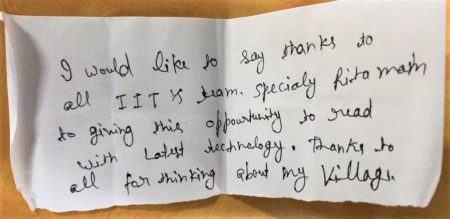 I would like to say thanks to
all IIT's team. Specialy Rita mam
to giving this oppourtunity to read
with Latest technology. Thanks to
all for thinking about my Village.